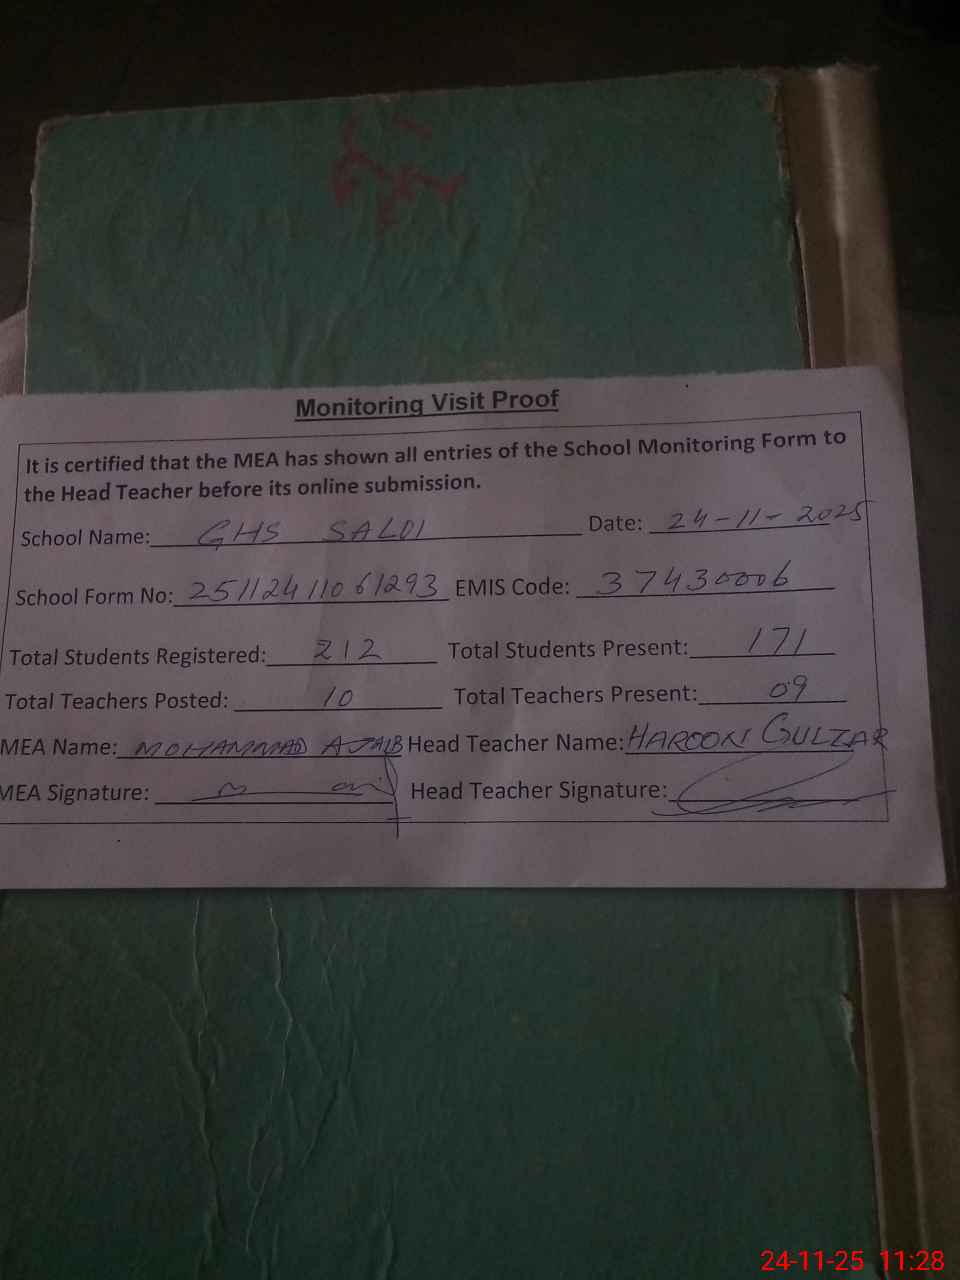 Monitoring Visit Proof
It is certified that the MEA has shown all entries of the School Monitoring Form to
the Head Teacher before its online submission.
School Name: GHS SALOI Date: 24-11-2025
School Form No: 25112411061293 EMIS Code: 37430006
Total Students Registered: 212 Total Students Present: 171
Total Teachers Posted: 10 Total Teachers Present: 09
MEA Name: MOHAMMAD AJAIB Head Teacher Name: HAROON GULZAR
MEA Signature: Head Teacher Signature:
24-11-25 11:28